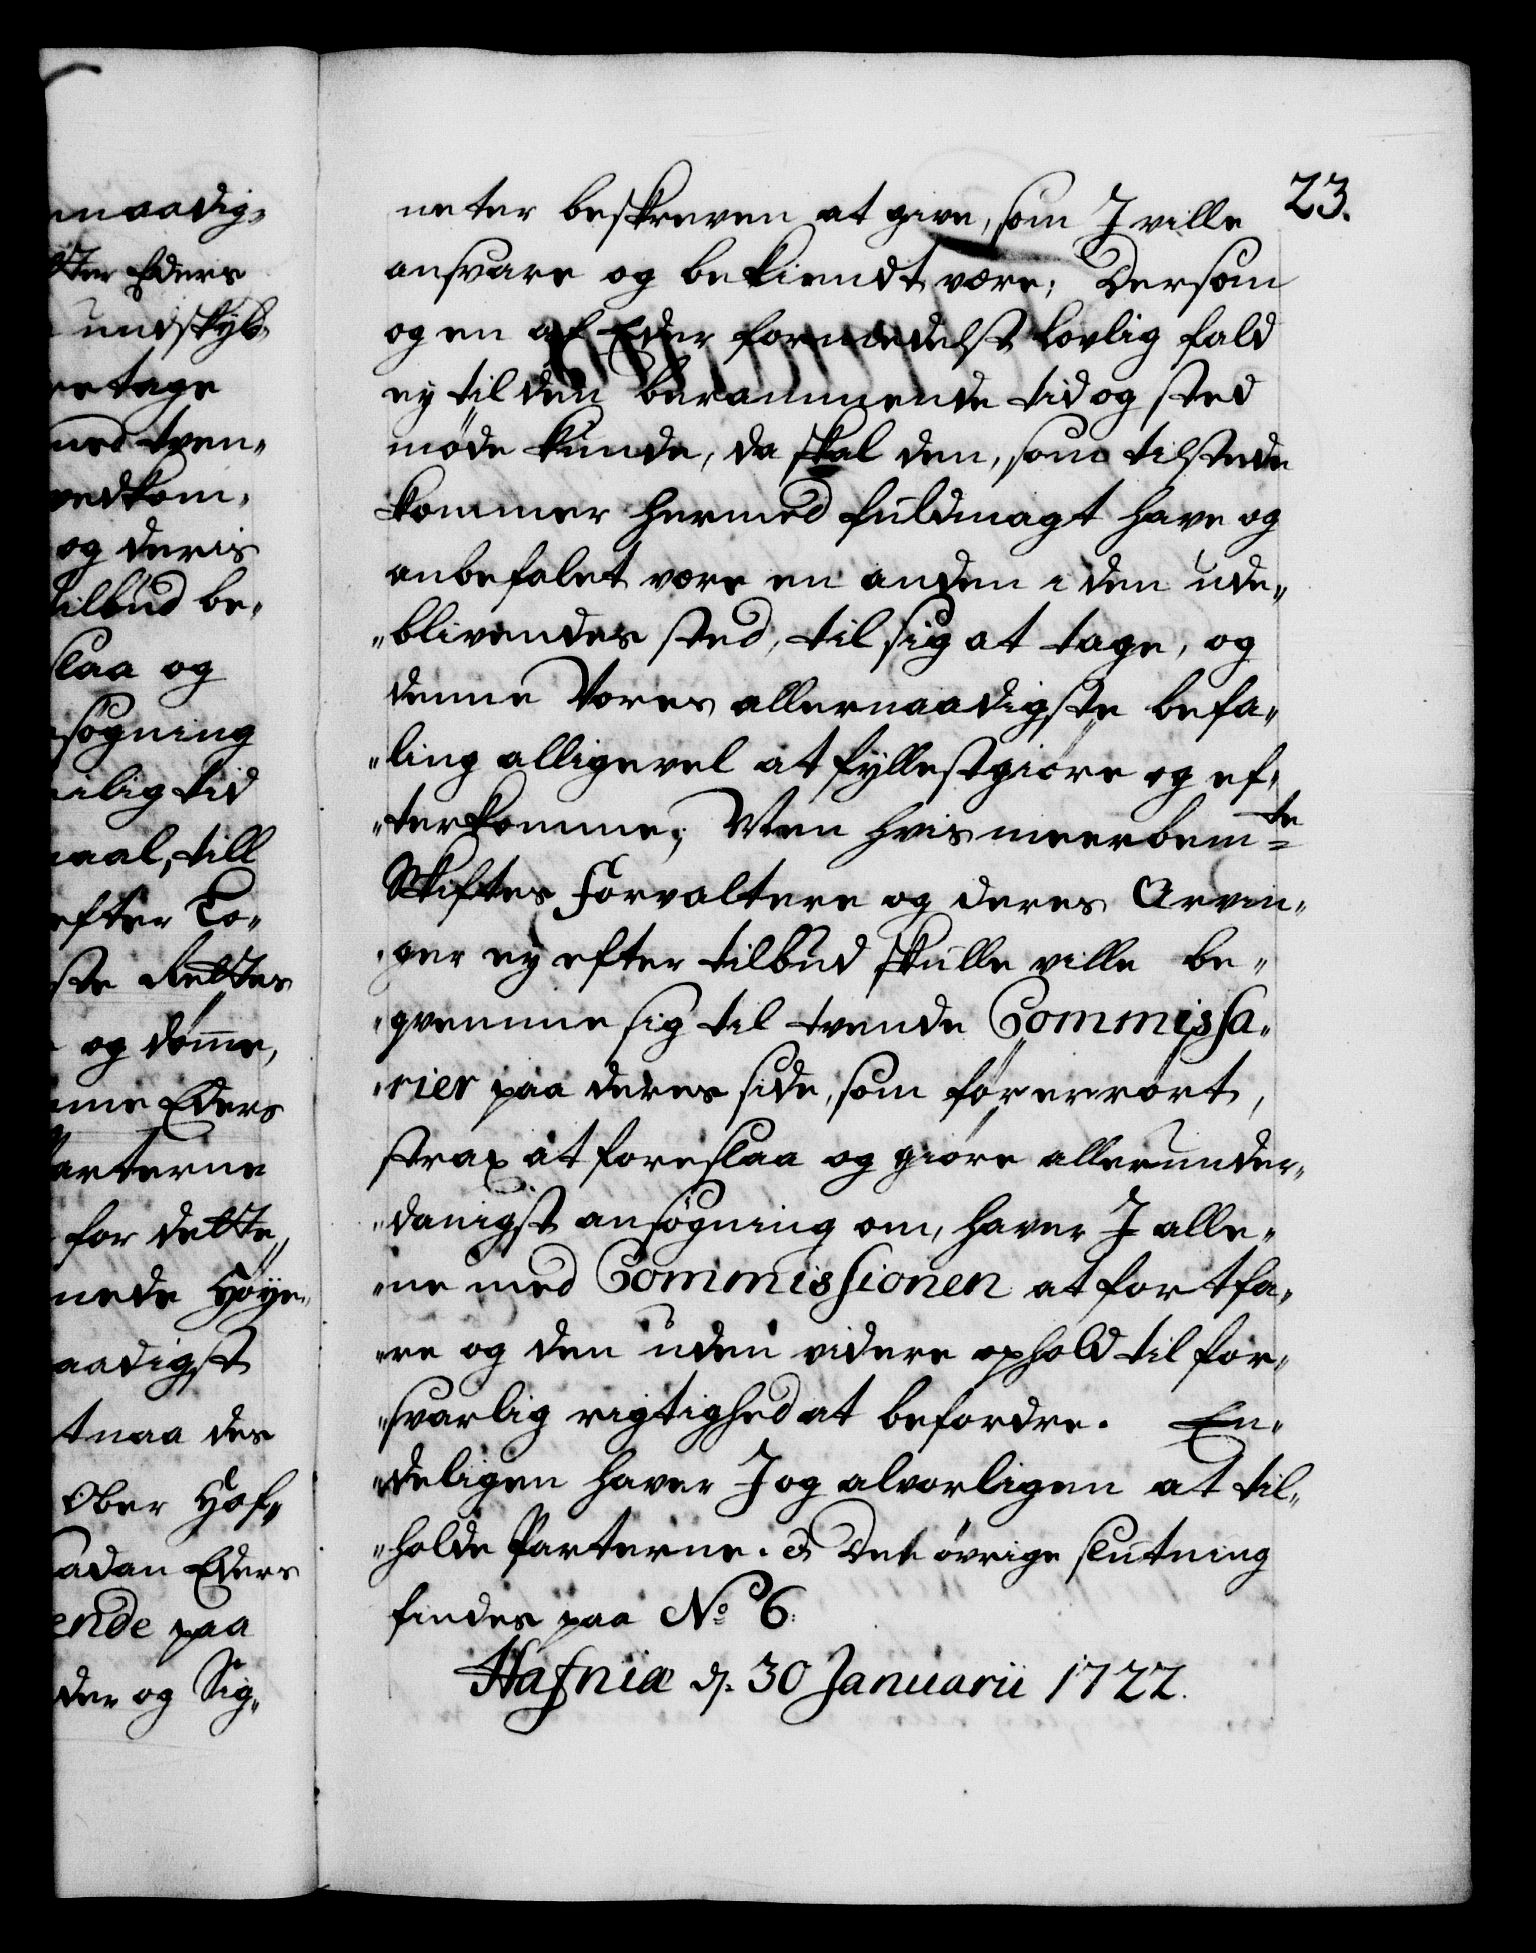 23.
neter beskreven at give, som I ville
ansvare og bekiendt være; Dersom
og en af Eder formedelst lovlig fald
ey til den berammende tid og sted
møde kunde, da skal den, som tilstede
kommer hermed fuldmagt have og
anbefalet være en anden i den ude„
„blivendes sted, til sig at tage, og
denne Vores allernaadigste befa„
„ling alligevel at fyllestgiøre og ef„
„terkomme; Men hvis meerbemte
Skiftes Forvaltere og deres Arvin„
„ger ey efter tilbud skulle ville be„
„qvemme sig til tvende Commissa„
„rier paa deres side, som før er rørt,
strax at foreslaa og giøre allerunder„
„danigst ansøgning om, haver I alle„
„ne med Commissionen at fortfa„
„re og den uden videre ophold til for„
„svarlig rigtighed at befordre. En„
„deligen haver I og alvorligen at til„
„holde Parterne. & Det øvrige slutning
findes paa No 6.
Hafniæ d. 30 Januarii 1722.
naadig„
Eders
undskyl„
tage
med tven„
vedkom„
og deris
tilbud be„
slaa og
søgning
tid
till
efter Lo„
Rettes
og dømme,
Eders
Parterne
for dette
Høye„
naadigst
des
Ober Hof„
Eders
paa
der og Sig„